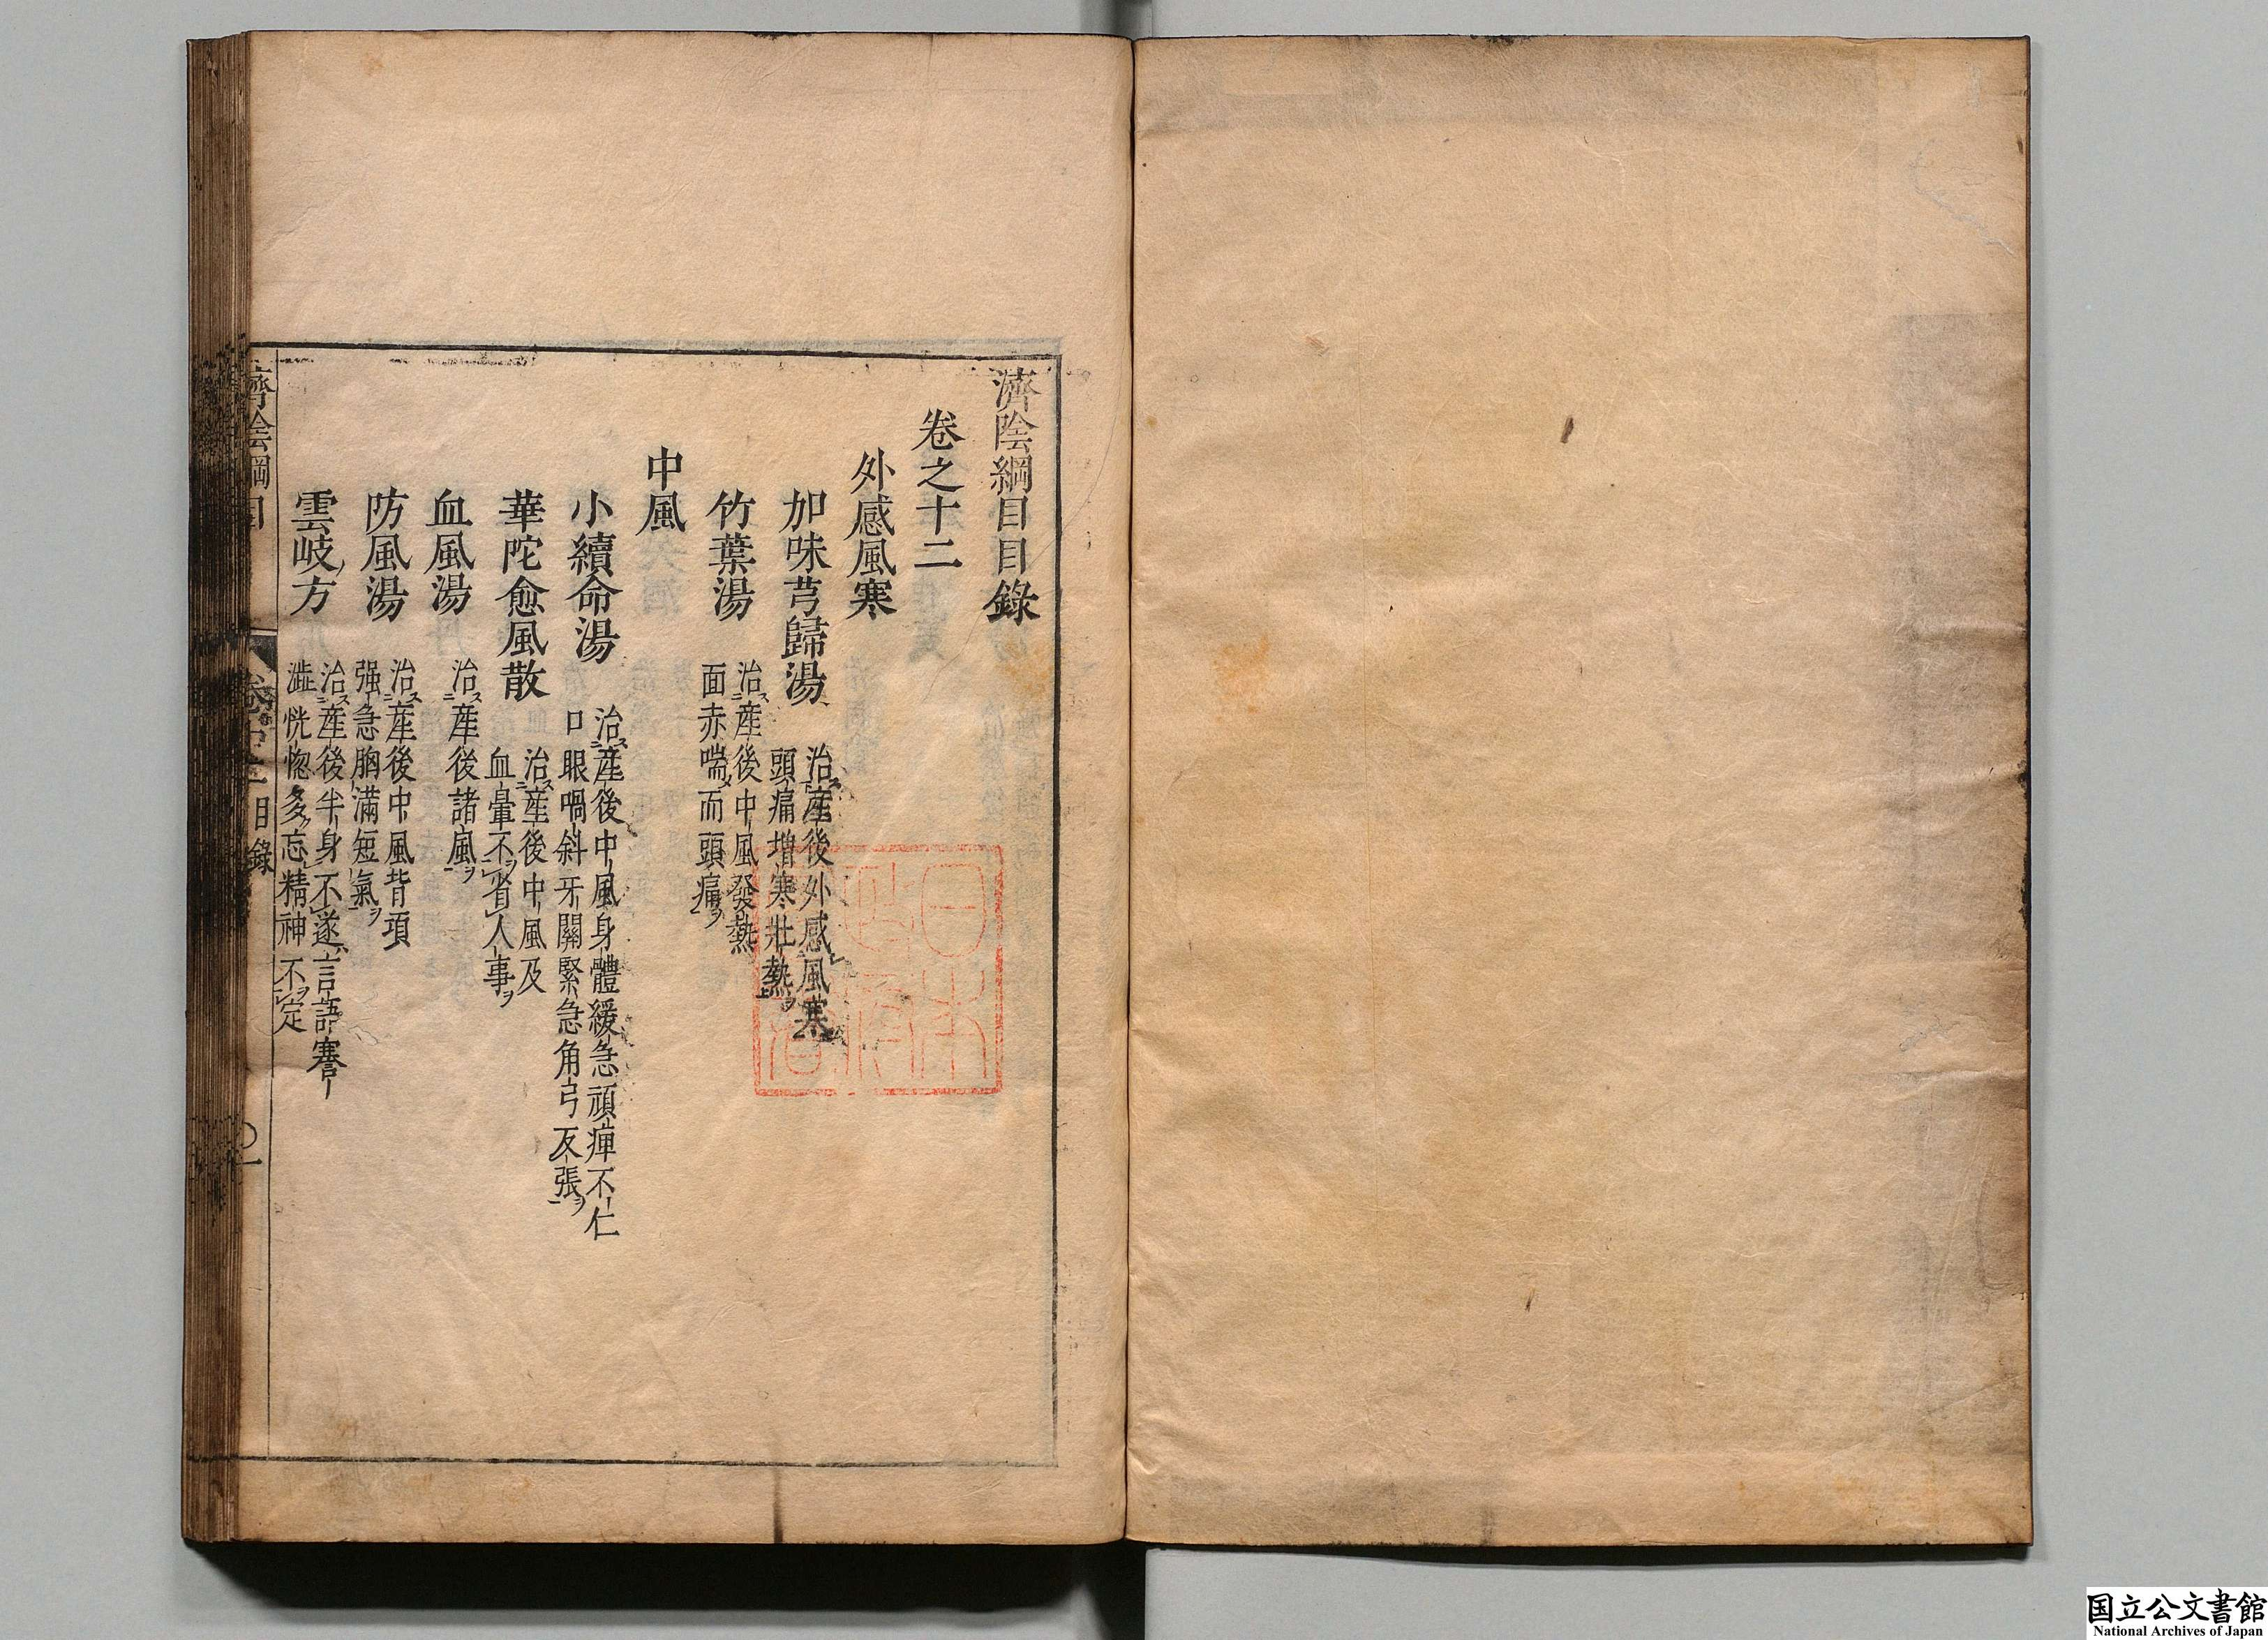 濟陰綱目目錄
卷之十二
外感風寒
加味芎歸湯 治産後外感風寒
頭痛増寒壯熱
竹葉湯 治産後中風發熱
面赤喘而頭痛
中風
小續命湯 治産後中風身體緩急頑痺不仁
口眼喎斜牙關緊急角弓反張
華陀愈風散 治産後中風及
血暈不省人事
血風湯 治産後諸風
防風湯 治産後中風背項
强急胸滿短氣
雲岐方 治産後半身不遂言語謇
澁恍惚多忘精神不定
濟陰綱目 目錄
日本
国立公文書館
National Archives of Japan